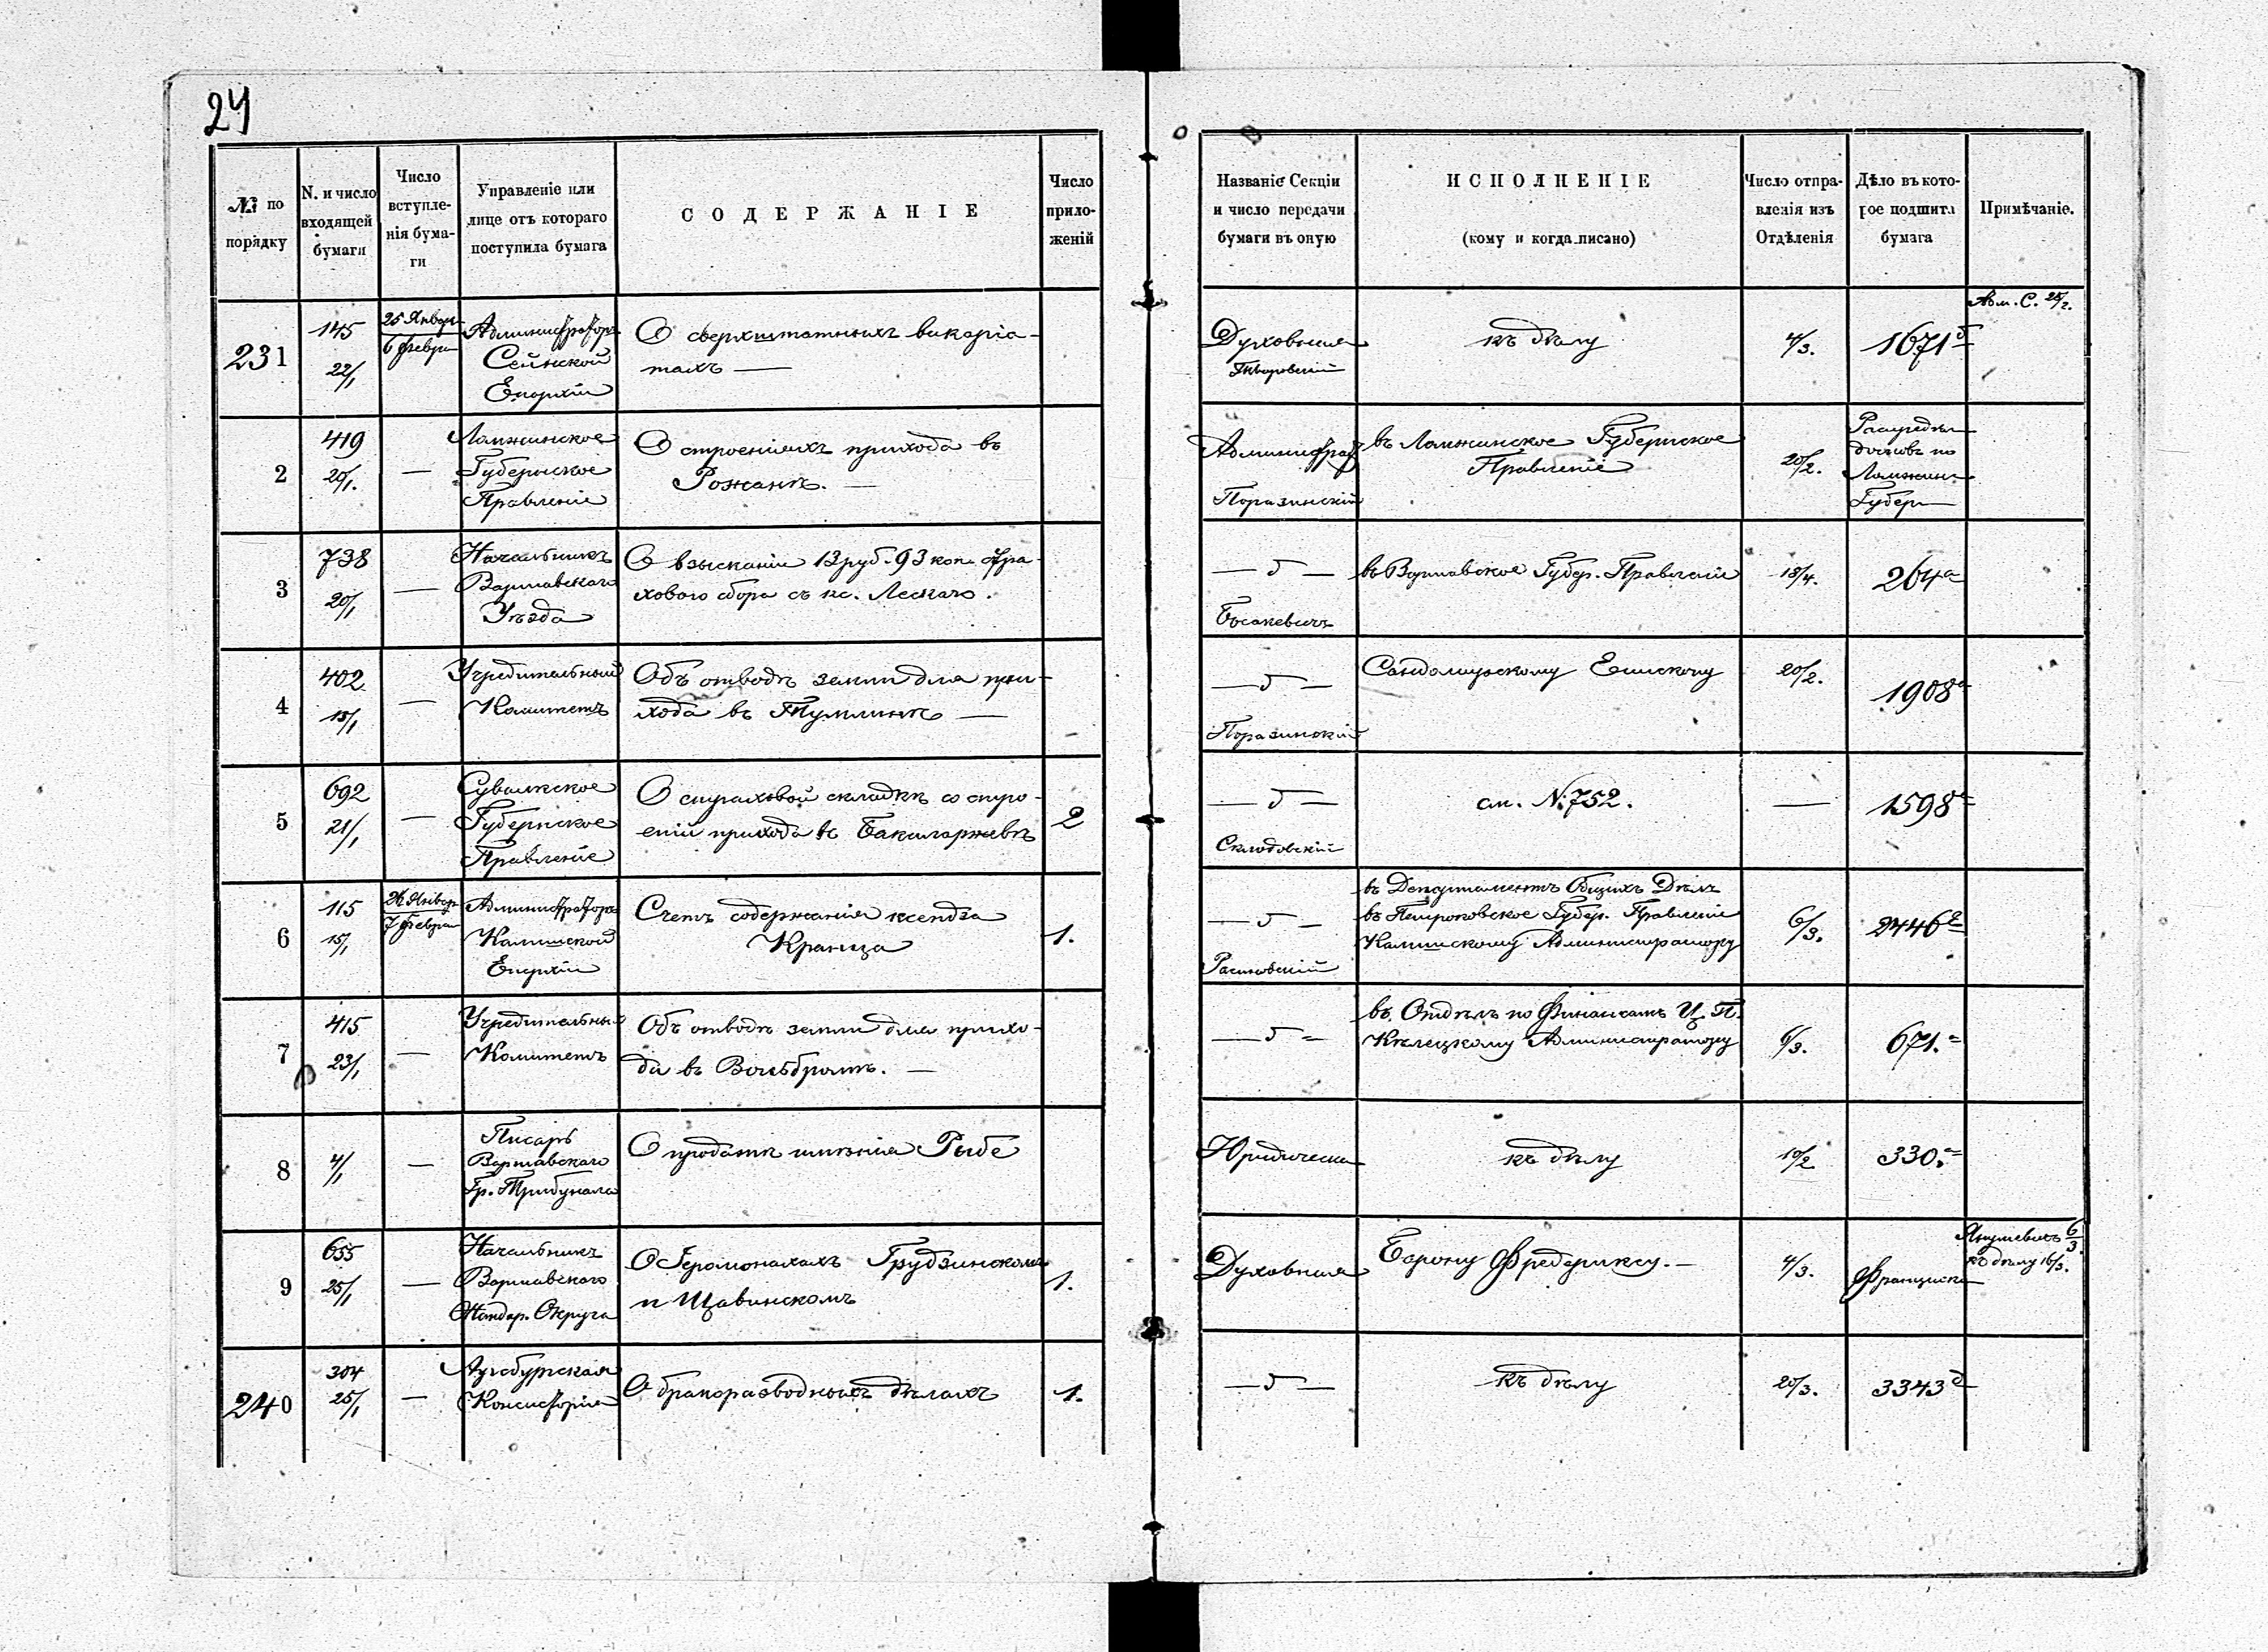 24
№ по порядку
N. и число входящей бумаги
Число вступле-нія бума-ги
Управленіе или лице отъ котораго поступила бумага
СОДЕРЖАНІЕ
Число прило-женій
Названіе Секціи и число передачи бумаги въ оную
ИСПОЛНЕНІЕ
(кому и когда писано)
Число отпра-вленія изъ Отдѣленія
Дѣло въ кото-рое подшита бумага
Примѣчаніе.
231
145
22/1
25 Январ
6 Февра
Администраторъ
Сейнской
Епархіи
О сверхштатныхъ викаріа-
тахъ —
Духовная
къ дѣлу
4/3.
1671
Адм. С. 25/2.
2
419
20/1.
—
Ломжинское
Губернское
Правленіе
О строеніяхъ прихода въ
Рожанѣ. —
Администрат
Поразинскій
въ Ломжинское Губернское
Правленіе
20/2.
Ломжин
Губер
3
738
20/1
—
Начальникъ
Варшавскаго
Уѣзда
О взысканіи 13 руб. 93 коп. стра-
ховаго сбора съ кс. Лескаго.
въ Варшавское Губер. Правленіе
18/4.
264а
4
402
15/1
—
Учредительный
Комитетъ
Объ отводѣ земли для при-
хода въ Тумлинѣ —
Поразинскій
Сандомирскому Епископу
20/2.
1908
5
692
21/1
—
Сувалкское
Губернское
Правленіе
О страховой складкѣ со стро-
еній прихода въ Бакаларжевѣ
2
Склодовскій
см. №752.
—
1598
6
115
15/1
26 Январ
7 Февра
Администраторъ
Калишской
Епархіи
Счетъ содержанія ксендза
Кранца
1.
въ Департаментъ Общихъ Дѣлъ
въ Петроковское Губер. Правленіе
Калишскому Администратору
6/3.
2446
7
415
23/1
—
Учредительный
Комитетъ
Объ отводѣ земли для прихо-
да въ Вольбромѣ. —
въ Отдѣлъ по Финансамъ Ц. П.
Кѣлецкому Администратору
6/3.
671.
8
4/1
—
Писарь
Варшавскаго
Гр. Трибунала
О продажѣ имѣнія Рыбе
Юридическа
къ дѣлу
10/2
330.
9
655
25/1
—
Начальникъ
Варшавскаго
Жандар. Округа
О Іеромонахахъ Грудзинскомъ
и Щавинскомъ
1.
Духовная
Барону Фредериксу. —
4/3.
Францискан
Янушевичъ 6/3.
къ дѣлу 16/3.
240
304
25/1
—
Аугсбургская
Консисторія
О бракоразводныхъ дѣлахъ
1.
къ дѣлу
20/3.
3343